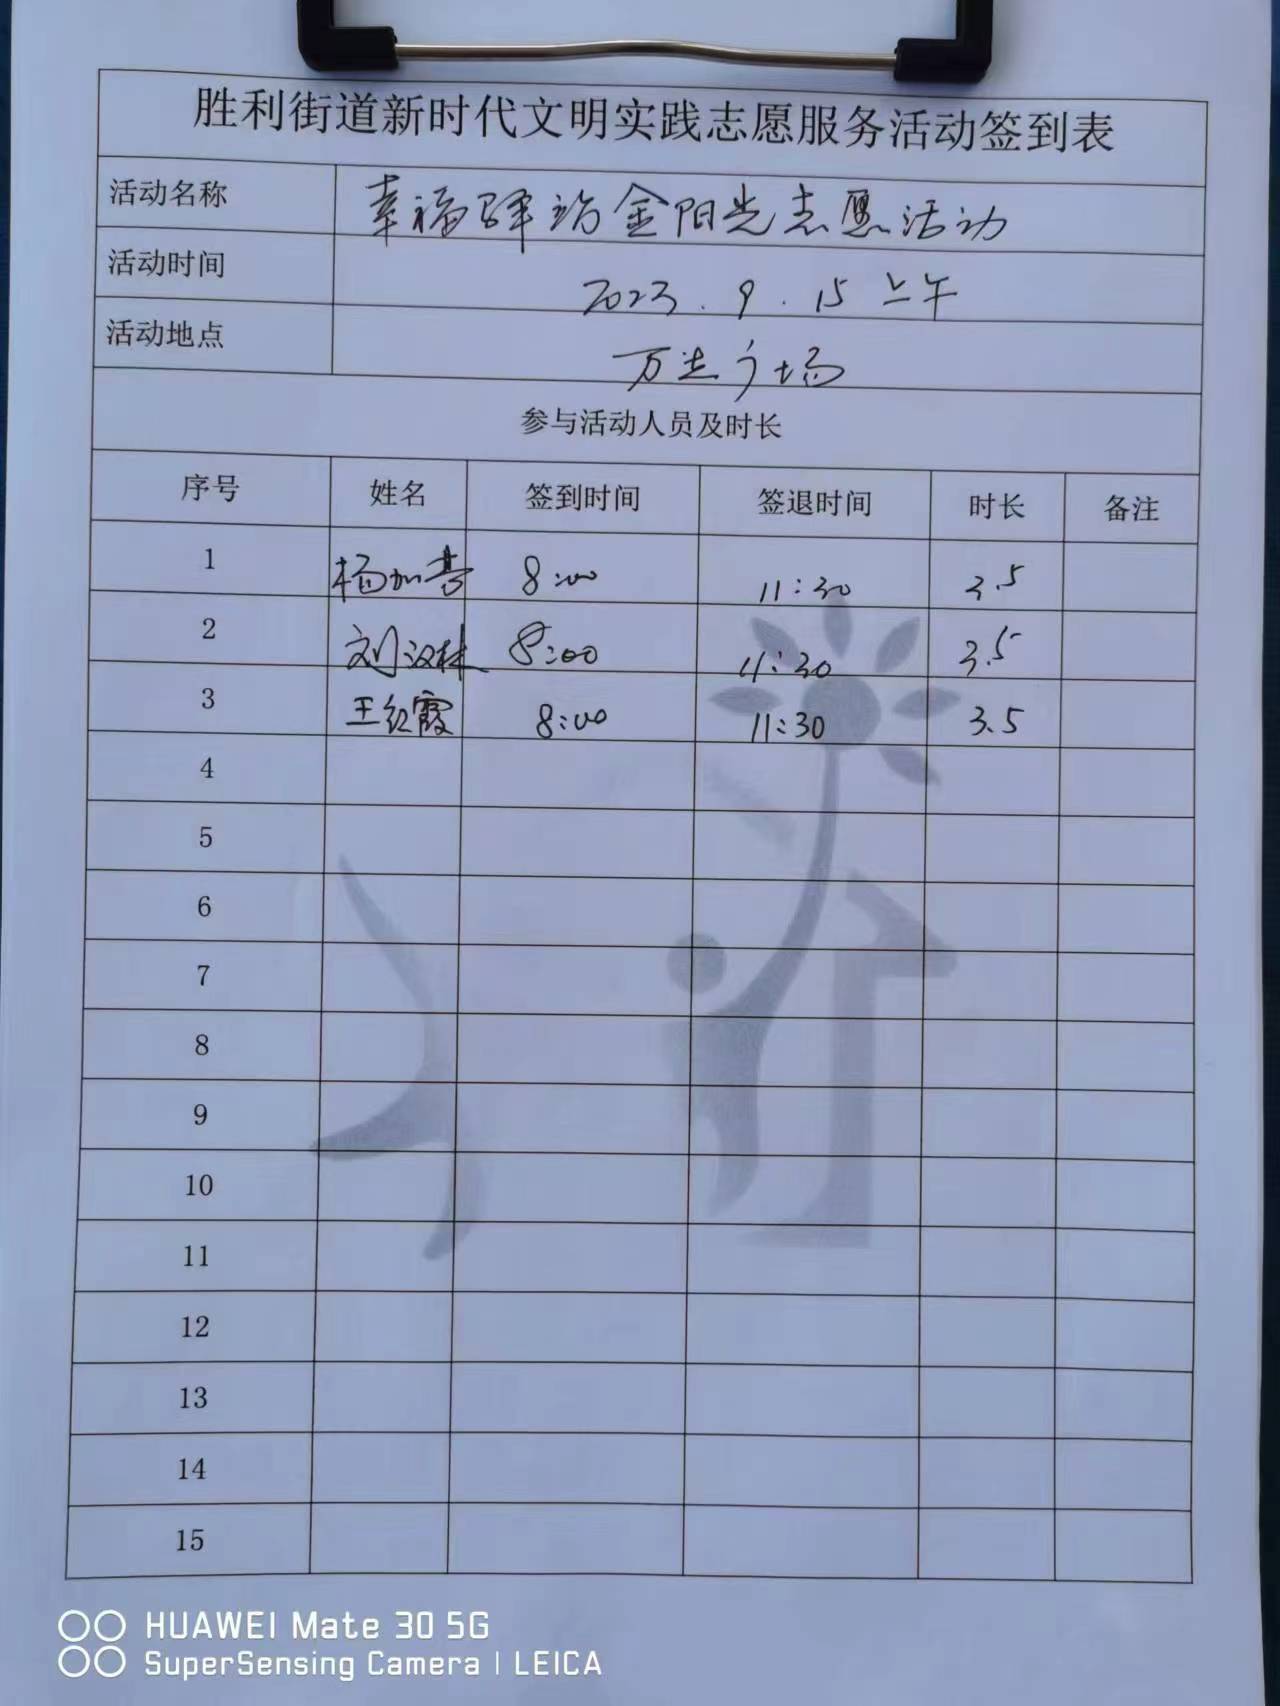 胜利街道新时代文明实践志愿服务活动签到表
活动名称 幸福驿站金阳光志愿活动
活动时间 2023.9.15上午
活动地点 万达广场
参与活动人员及时长
序号 姓名 签到时间 签退时间 时长 备注
1 杨加喜 8:00 11:30 3.5
2 刘汉林 8:00 11:30 3.5
3 王红霞 8:00 11:30 3.5
4
5
6
7
8
9
10
11
12
13
14
15
HUAWEI Mate 30 5G
SuperSensing Camera | LEICA